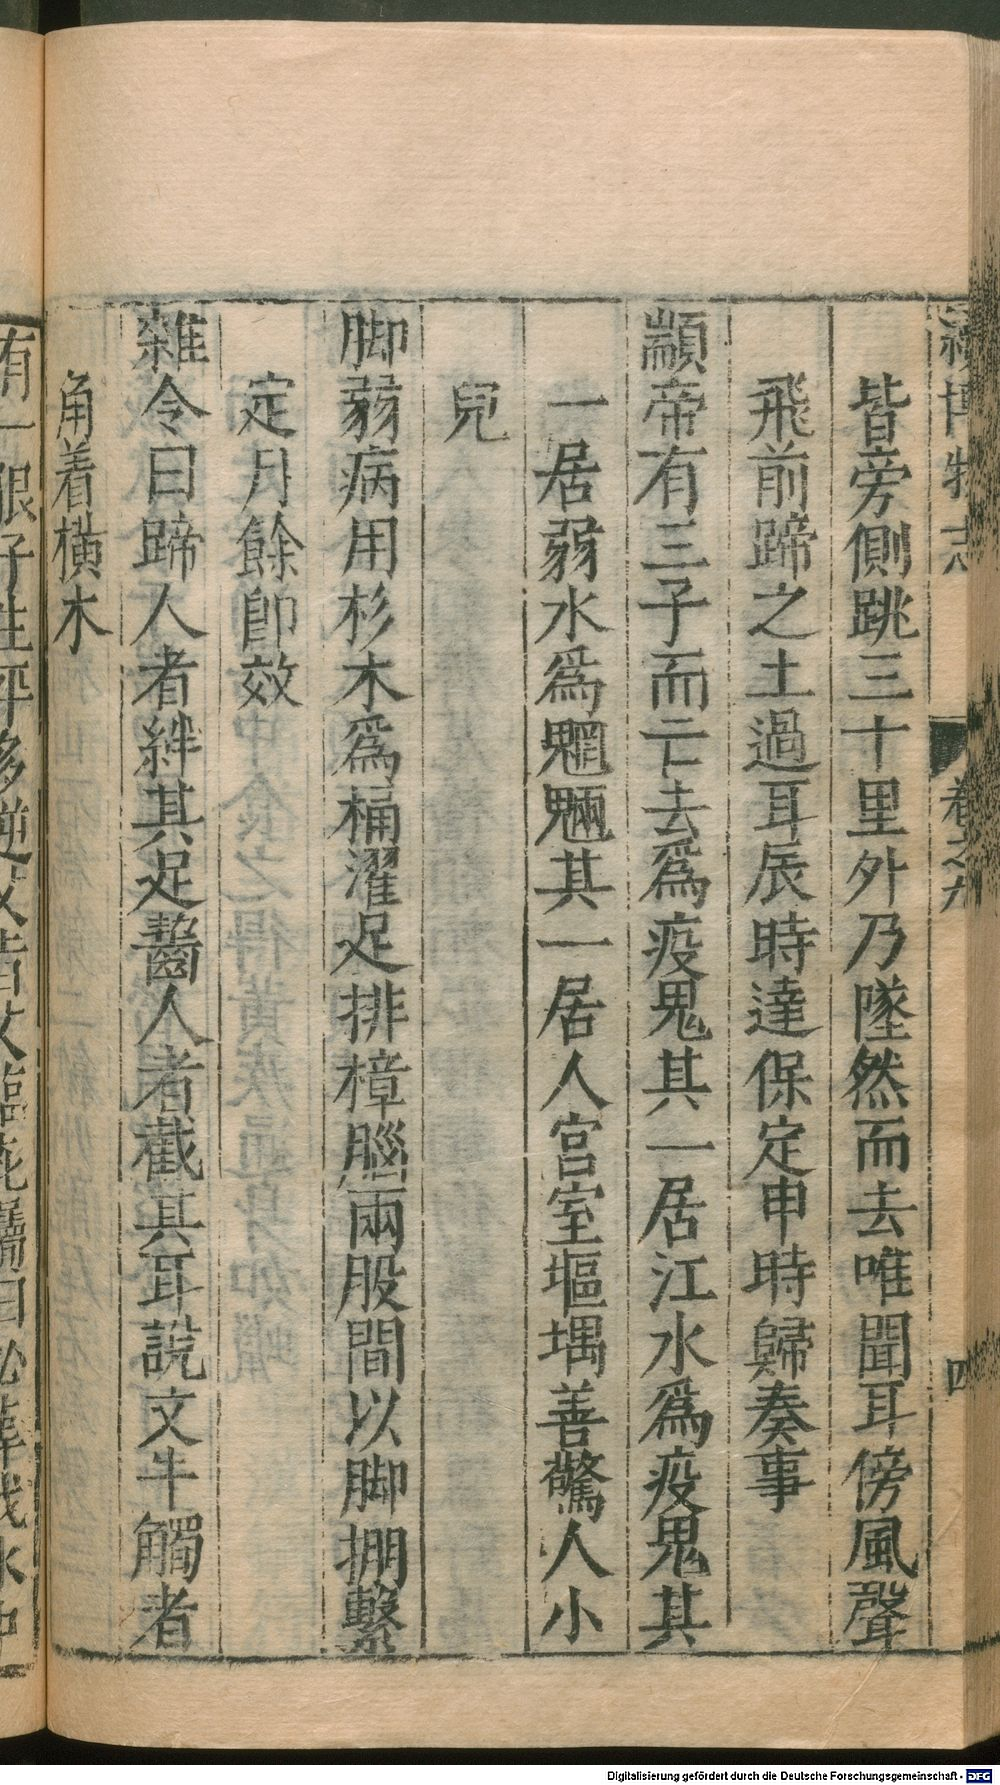 續博物志
卷之九
四
皆旁側跳三十里外乃墜然而去唯聞耳傍風聲
飛前蹄之土過耳辰時達保定申時歸奏事
顓帝有三子而亡去爲疫鬼其一居江水爲疫鬼其
一居弱水爲魍魎其一居人宮室摳堣善驚人小
兒
脚弱病用杉木爲桶濯足排樟腦兩股間以脚掤繫
定月餘卽效
雜令曰蹄人者絆其足齧人者截其耳說文牛觸者
角着橫木
有一狠子生平多逆父旨父臨死囑曰必葬我水中
Digitalisierung gefördert durch die Deutsche Forschungsgemeinschaft - DFG